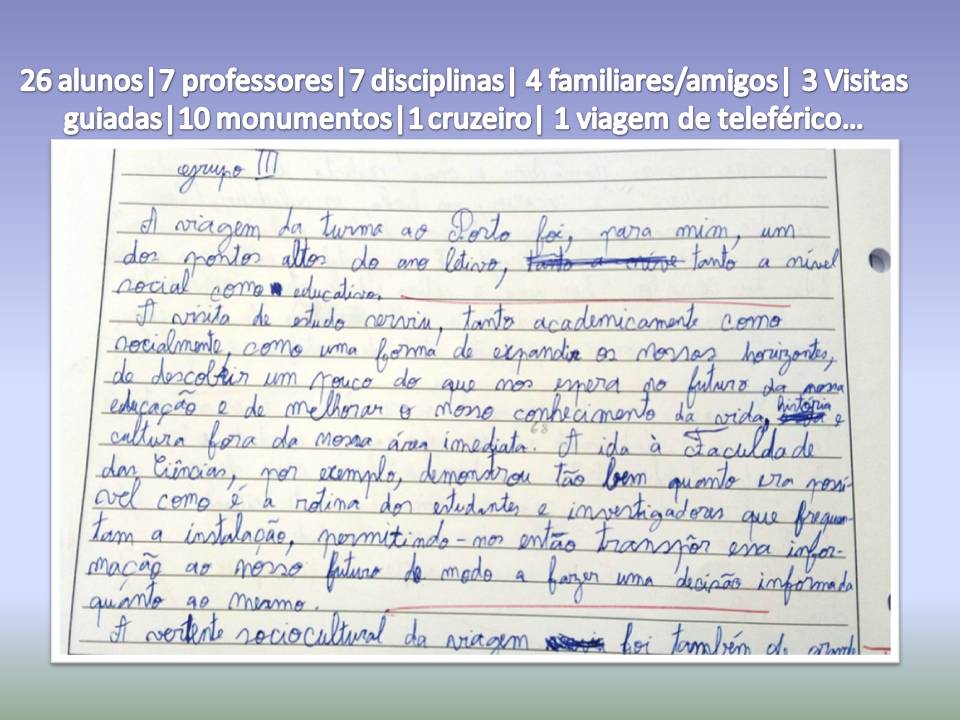 26 alunos|7 professores|7 disciplinas| 4 familiares/amigos| 3 Visitas
guiadas|10 monumentos|1 cruzeiro| 1 viagem de teleférico…
grupo III
A viagem da turma ao Porto foi, para mim, um
dos pontos altos do ano letivo, tanto a nível
social como educativo.
A visita de estudo serviu, tanto academicamente como
socialmente, como uma forma de expandir os nossos horizontes,
de descobrir um pouco do que nos espera no futuro da nossa
educação e de melhorar o nosso conhecimento da vida, história e
cultura fora da nossa área imediata. A ida à Faculdade
das Ciências, por exemplo, demonstrou tão bem quanto era possí-
vel como é a rotina dos estudantes e investigadores que frequen-
tam a instalação, permitindo-nos então transpôr essa infor-
mação ao nosso futuro de modo a fazer uma decisão informada
quanto ao mesmo.
A vertente sociocultural da viagem foi também de grande